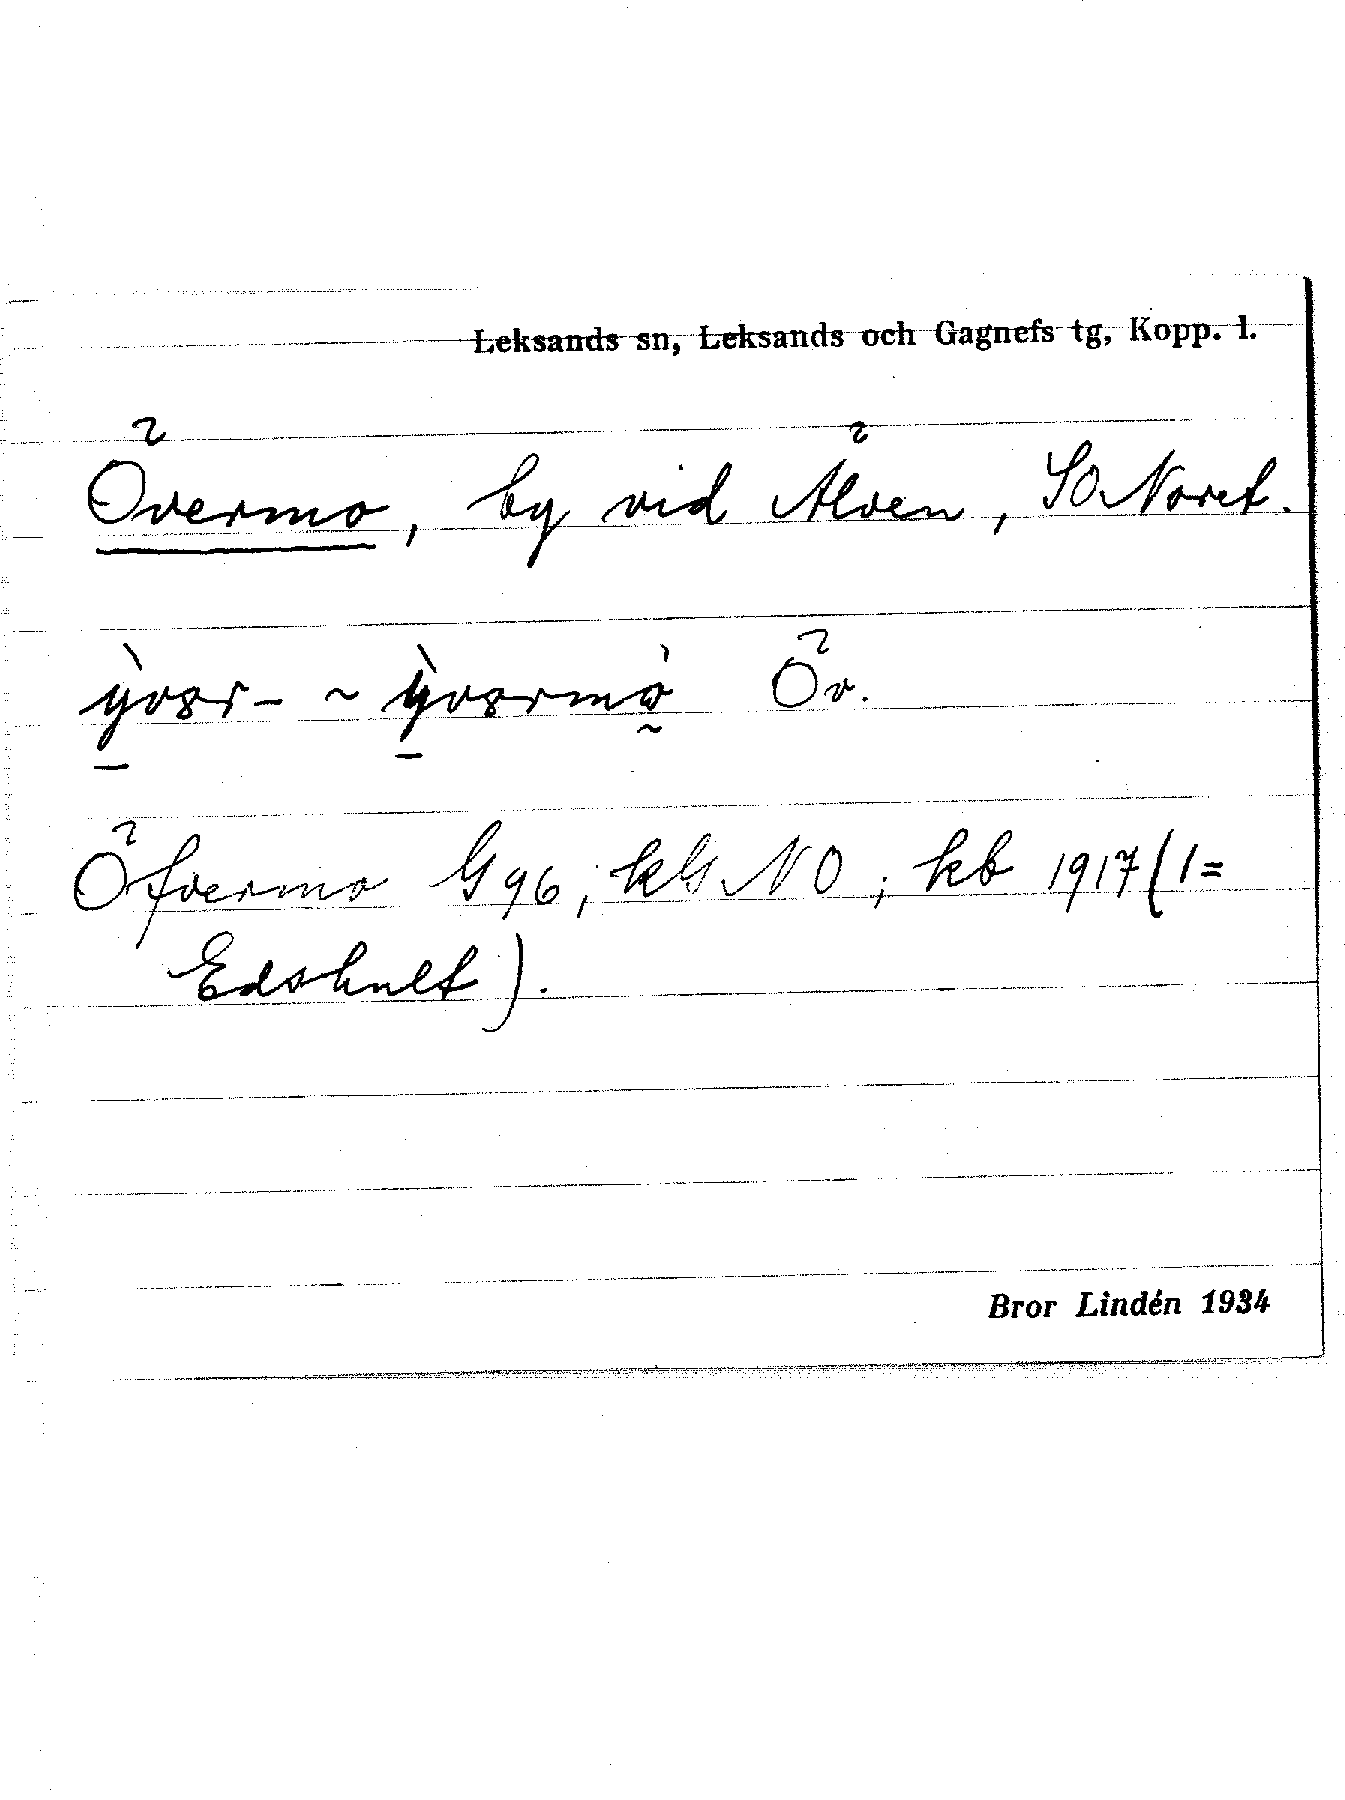 Leksands sn, Leksands och Gagnefs tg, Kopp. l.
Övermo, by vid Älven, SO Noret.
Öv.
Öfvermo G 96; kG NO; kb 1917 (1=
Edshult).
Bror Lindén 1934